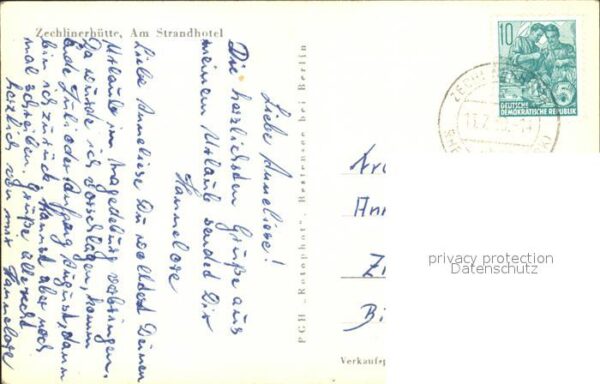 Zechlinerhütte, Am Strandhotel
Liebe Anneliese!
Die herzlichsten Grüße aus
meinem Urlaub sendet Dir
Hannelore
Liebe Anneliese Du wolltest Deinen
Urlaub in Magedeburg verbringen.
Da würde ich vorschlagen, komm
Ende Juli oder Anfang August, dann
bin ich zurück. Kannst aber noch
mal schreiben. Grüße alle recht
herzlich von mir Hannelore
PGH „Rotophot", Bestensee bei Berlin
10
5
DEUTSCHE
DEMOKRATISCHE REPUBLIK
ZECHL
Ann
Bi
Verkaufsp
privacy protection
Datenschutz